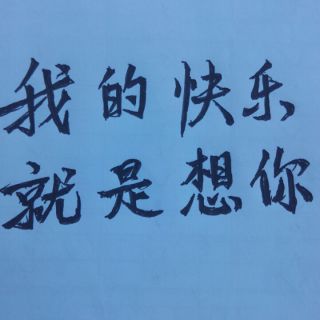 我的快乐
就是想你